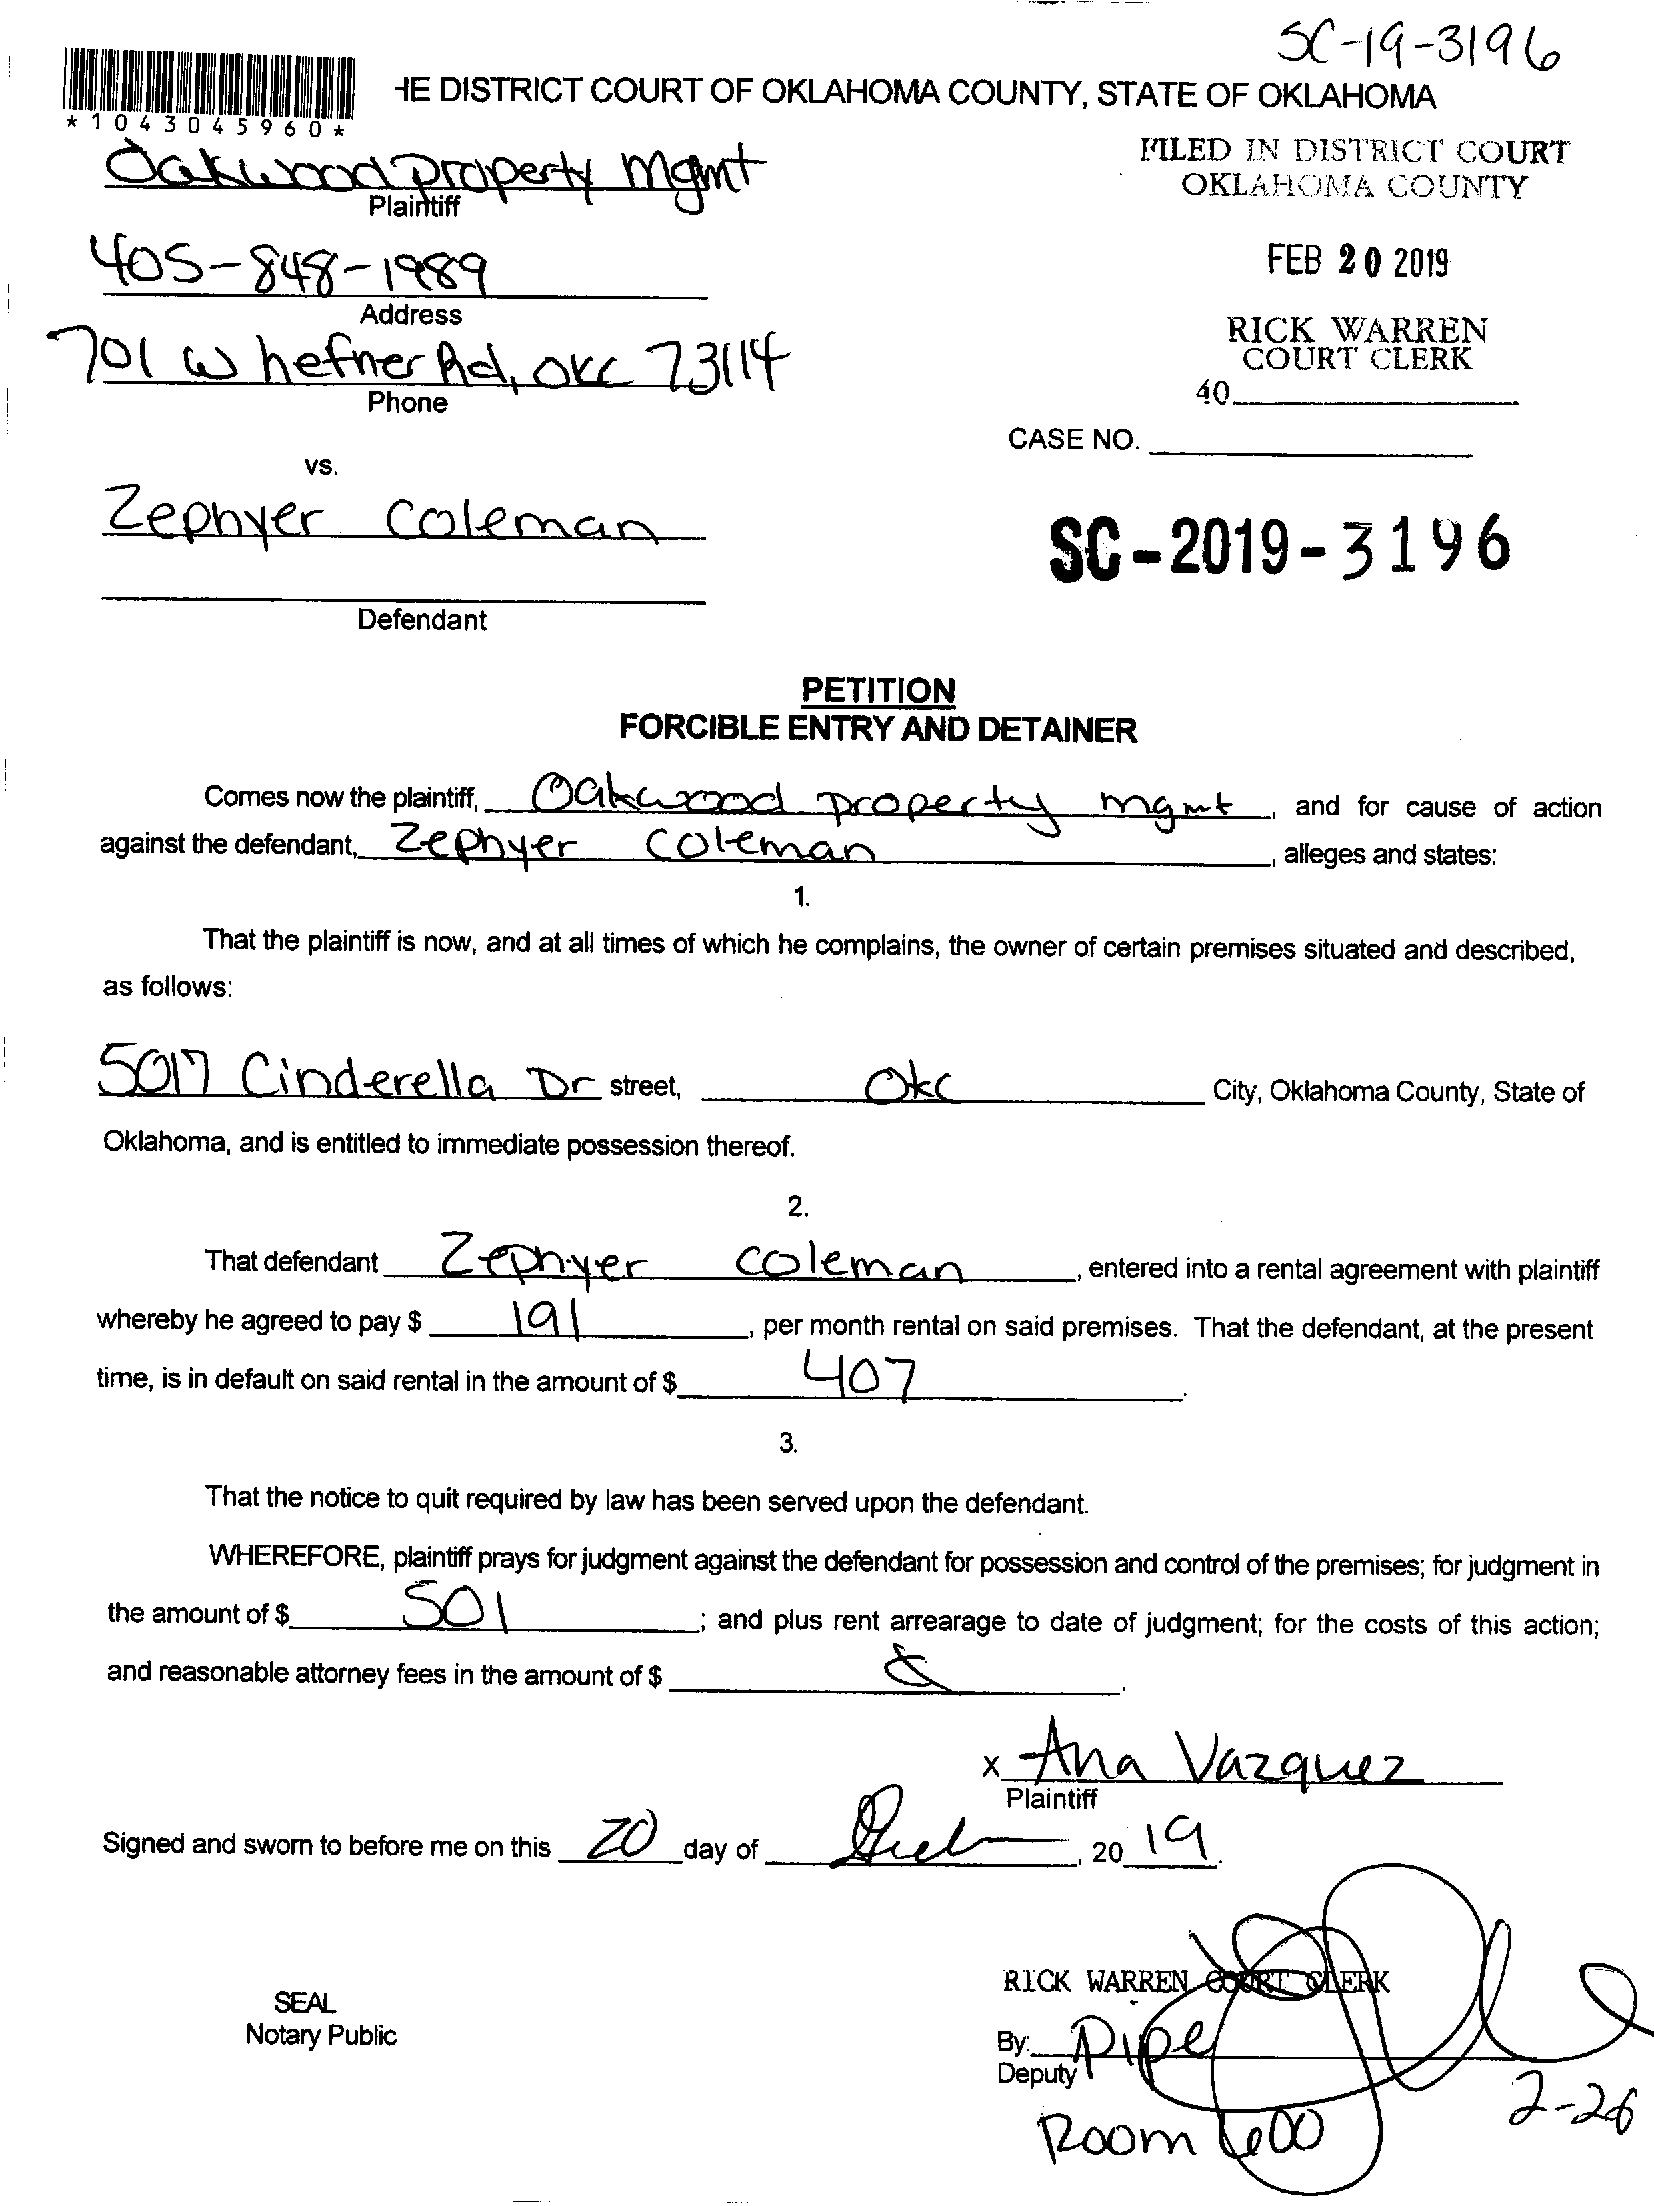 SC-19-3196
*1043045960*
HE DISTRICT COURT OF OKLAHOMA COUNTY, STATE OF OKLAHOMA
Oakwood property mgmt
Plaintiff
FILED IN DISTRICT COURT
OKLAHOMA COUNTY
405-848-1989
Address
FEB 20 2019
701 W hefner Rd, OKC 73114
Phone
RICK WARREN
COURT CLERK
40
CASE NO.
vs.
Zephyer Coleman
SC-2019-3196
Defendant
PETITION
FORCIBLE ENTRY AND DETAINER
Comes now the plaintiff, Oakwood property mgmt, and for cause of action
against the defendant, Zephyer Coleman, alleges and states:
1.
That the plaintiff is now, and at all times of which he complains, the owner of certain premises situated and described,
as follows:
5017 Cinderella Dr street, OKC City, Oklahoma County, State of
Oklahoma, and is entitled to immediate possession thereof.
2.
That defendant Zephyer Coleman, entered into a rental agreement with plaintiff
whereby he agreed to pay $ 191, per month rental on said premises. That the defendant, at the present
time, is in default on said rental in the amount of $ 407.
3.
That the notice to quit required by law has been served upon the defendant.
WHEREFORE, plaintiff prays for judgment against the defendant for possession and control of the premises; for judgment in
the amount of $ 501; and plus rent arrearage to date of judgment; for the costs of this action;
and reasonable attorney fees in the amount of $
x Ana Vazquez
Plaintiff
Signed and sworn to before me on this 20 day of , 20 19.
RICK WARREN COURT CLERK
SEAL
Notary Public
By:
Deputy
2-26
Room 600